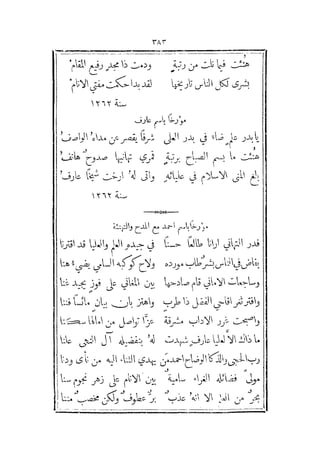 ٣٨٣
هُنئتَ فيما نلت من رتبةٍ ودمت ذا مجدٍ رفيع المقام
بشرى لكل الناس تاريخها لقد بدا حكمت مفتي الانام
سنة ١٢٦٢
مؤرخًا باسم عارف
يا بدر علمٍ ضاء في بدر العلى شرفًا يقصر عن مداه الواصف
هُنئتَ ما بسم الصباح برتبةٍ قمري تهانيها صدوحٌ هاتف
بلغ المنى الاسلام في عليائه واتى له ارخت شيخًا عارف
سنة ١٢٦٢
مؤرخًا باسم احمد مع المدح والتهنئة
بدر التهاني ارانا طالعًا حسنًا في جيدهِ العلم والعليا قد اقترنا
في الناس بشرٌ طاب مورده ولاح كوكبه السامي يضيء هنا
وساجعات الاماني قام صادحها بين المعاني على فوزٍ يجيد غنا
وافتر ثغر اقاحي الفضل ذا طربٍ واهتز بان بيانٍ مائسًا فننا
واصبحت غرر الاداب مشرقة عزًّا تواصل من
ما ذاك الا لعليا عارفٍ شهدت له بتفضيله آل النهى علنا
رب الحجى والذكا الوضاح احمد من يهدي الثناء اليه من نأى ودنا
مولىً فضائله الغراء ساميةٌ بين الانام على زهر نجوم سنا
بحرٌ من العلم الا انه عذبٌ برٌّ عطوفٌ ولكن مخصبٌ مننا